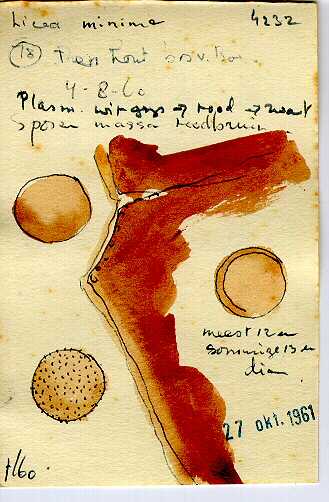 Licea minima 4232
(18) bosv.
4-8-60
Plasm. wit grys of rood of zwart
Sporen massa roodbruin
meest 12 en
sommige 13 en
diam
27 okt. 1961